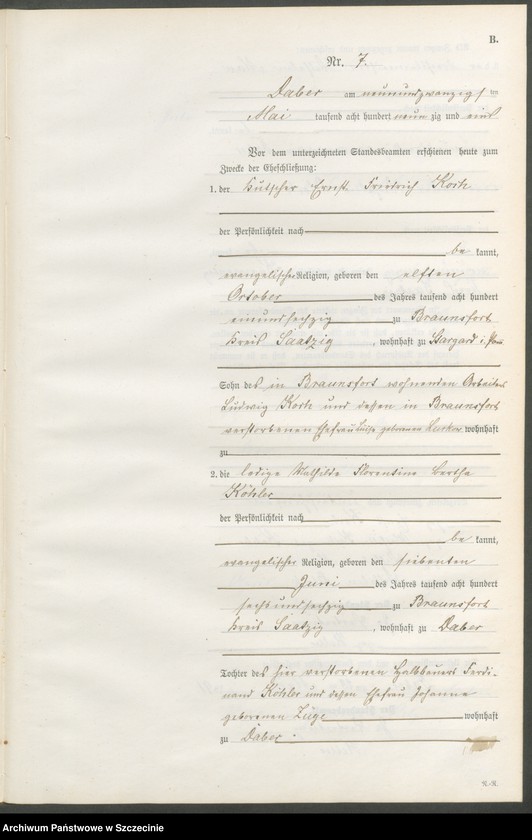 B.
Nr. 7.
Daber am neunundzwanzigsten
Mai tausend acht hundert neunzig und eins
Vor dem unterzeichneten Standesbeamten erschienen heute zum
Zwecke der Eheschließung:
1. der Kutscher Ernst Friedrich Koch
der Persönlichkeit nach
be kannt,
evangelischer Religion, geboren den elften
October des Jahres tausend acht hundert
einundsechzig zu Braunsfort
Kreis Saatzig, wohnhaft zu Stargard i. Pom
Sohn des in Braunsfort wohnenden Arbeiters
Ludwig Koch und dessen in Braunsfort
verstorbenen Ehefrau Luise geborenen wohnhaft
zu
2. die ledige Mathilde Florentine Bertha
Köhler
der Persönlichkeit nach
be kannt,
evangelischer Religion, geboren den siebenten
Juni des Jahres tausend acht hundert
sechsundsechzig zu Braunsfort
Kreis Saatzig, wohnhaft zu Daber
Tochter des hier verstorbenen Halbbauers Ferdi-
nand Köhler und dessen Ehefrau Johanne
geborenen Züge wohnhaft
zu Daber.
Archiwum Państwowe w Szczecinie